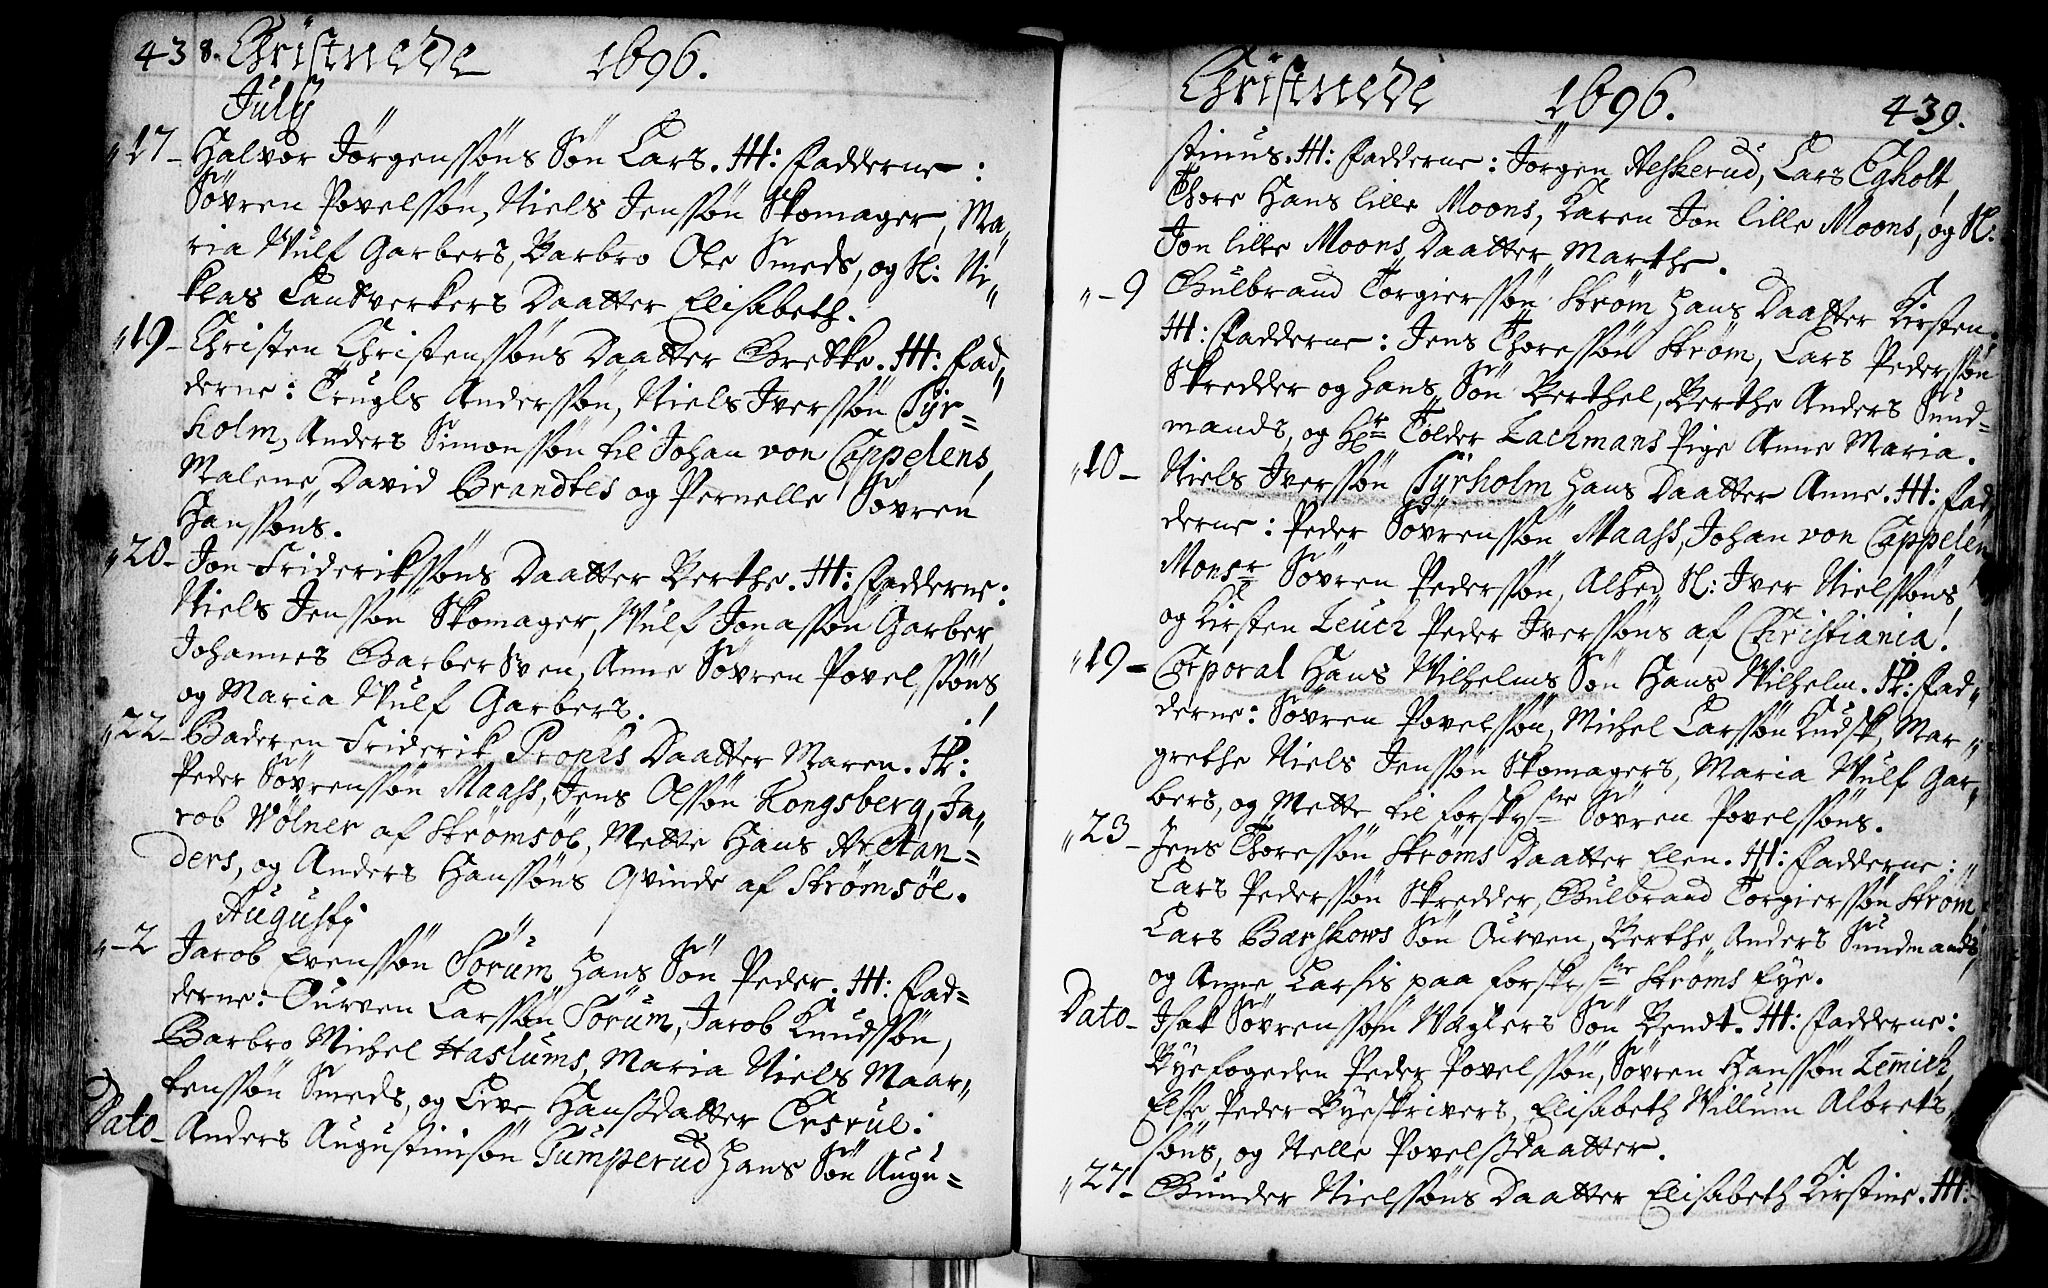 438. Christnede 1696.
July
17 - Halvor Jörgenssöns Sön Lars. H: Fadderne:
Sövren Povelssön, Niels Jenssön Skomager, Ma„
ria Wulf Garbers, Barbro Ole Smeds, og Sl: Ni„
klas Lautverkers Daatter Elisabeth.
19 - Christen Christenssöns Daatter Grethe. H: Fad„
derne: Trugls Anderssön, Niels Iverssön Tyr=
holm, Anders Simonssön til Johan von Cappelens,
Malene David Brandtes og Pernelle Sövren
Hanssöns.
20 - Jon Frideriksöns Daatter Berthe. H: Fadderne:
Niels Jenssön Skomager, Wulf Jonassön Garber,
Johannes Barber Sven, Anne Sövren Povelssöns,
og Maria Wulf Garbers.
22 - Baderen Friderik Propfs Daatter Maren. Sk:
Peder Sövrenssön Maass, Jens Olssön Kongsberg, Ja„
cob Völner af Strömsöe, Mette Hans Arctan=
ders, og Anders Hanssöns Qvinde af Strömsöe.
Augusti
2 Jacob Evenssön Sörum hans Sön Peder. H: Fad=
derne: Ourven Larssön Sörum, Jacob Knudssön,
Barbro Michel Haslums, Maria Niels Maar„
tenssön Smeds, og Live Hanssdatter Cresrul:
Dato - Anders Augustinsön Tumperud hans Sön Augu=
Christnede 1696. 439.
stinus. H: Fadderne: Jörgen Aeskerud, Lars Egholt,
Thore Hans lille Moons, Karen Jon lille Moons, og Sl:
Jon lille Moons Daatter Marthe.
9 Gulbrand Torgierssön Ström hans Daatter Kirsten.
H: Fadderne: Jens Thoressön Ström, Lars Pederssön
Skredder og hans Sön Berthel, Berthe Anders Sund=
mands, og Hr Tolder Lachmans Pige Anne Maria.
10 - Niels Iverssön Tyrholm hans Daatter Anne. H: Fad„
derne: Peder Sövrenssön Maass, Johan von Cappelen
Monsr Sövren Pederssön, Alhed Sl: Iver Nielssöns
og Kirsten Leuch Peder Iverssöns af Christiania.
19 - Corporal Hans Wilhelms Sön Hans Wilhelm. Sk: Fad=
derne: Sövren Povelssön, Michel Larssön Kudsk, Mar„
grethe Niels Jenssön Skomagers, Maria Wulf Gar„
bers, og Mette til forskne Sövren Povelssöns.
23 - Jens Thoressön Ströms Daatter Elen. H: Fadderne:
Lars Pederssön Skredder, Gulbrand Torgierssön Ström,
Lars Bærskows Sön Ourven, Berthe Anders Sundmands,
og Anne Larsis paa forskrne Ströms Eye.
Dato - Isak Sövrenssön Væglers Sön Bendt. H: Fadderne:
Byefogeden Peder Povelssön, Sövren Hanssön Lemich,
Else Peder Byeskrivers, Elisabeth Willum Albrets„
söns, og Nelle Povelsdaatter.
27 - Gunder Nielssöns Daatter Elisabeth Kirstine. H: